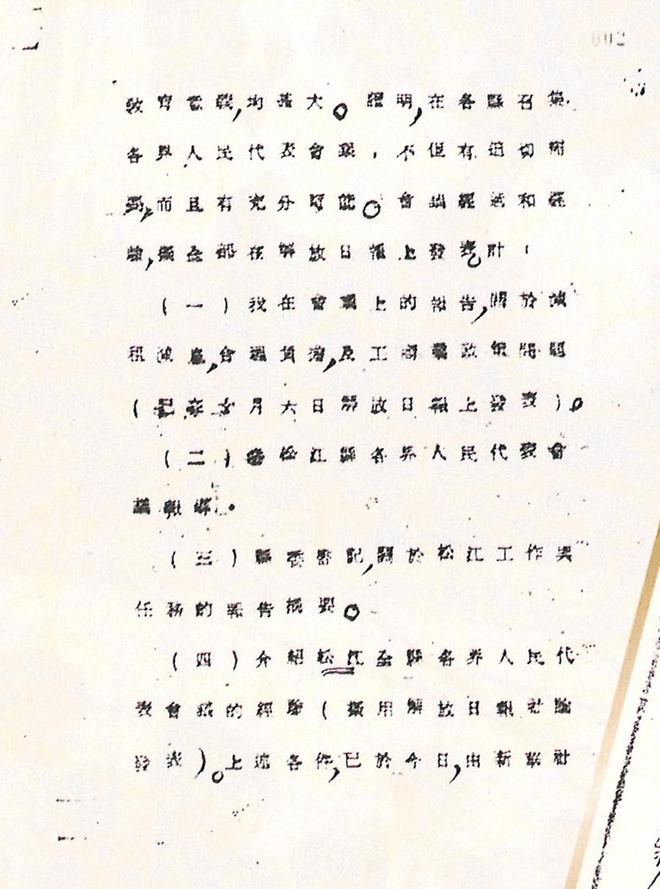 002
教育意義,均甚大。證明,在各縣召集
各界人民代表會議,不但有迫切需
要,而且有充分可能。會議經過和經
驗,擬全部在解放日報上發表,計:
(一)我在會議上的報告,關於減
租減息,合理負擔,及工商業政策問題
(已在十月六日解放日報上發表)。
(二)松江縣各界人民代表會
議報導。
(三)縣委書記,關於松江工作與
任務的報告摘要。
(四)介紹松江全縣各界人民代
表會議的經驗(擬用解放日報社論
發表)。上述各件,已於今日,由新華社